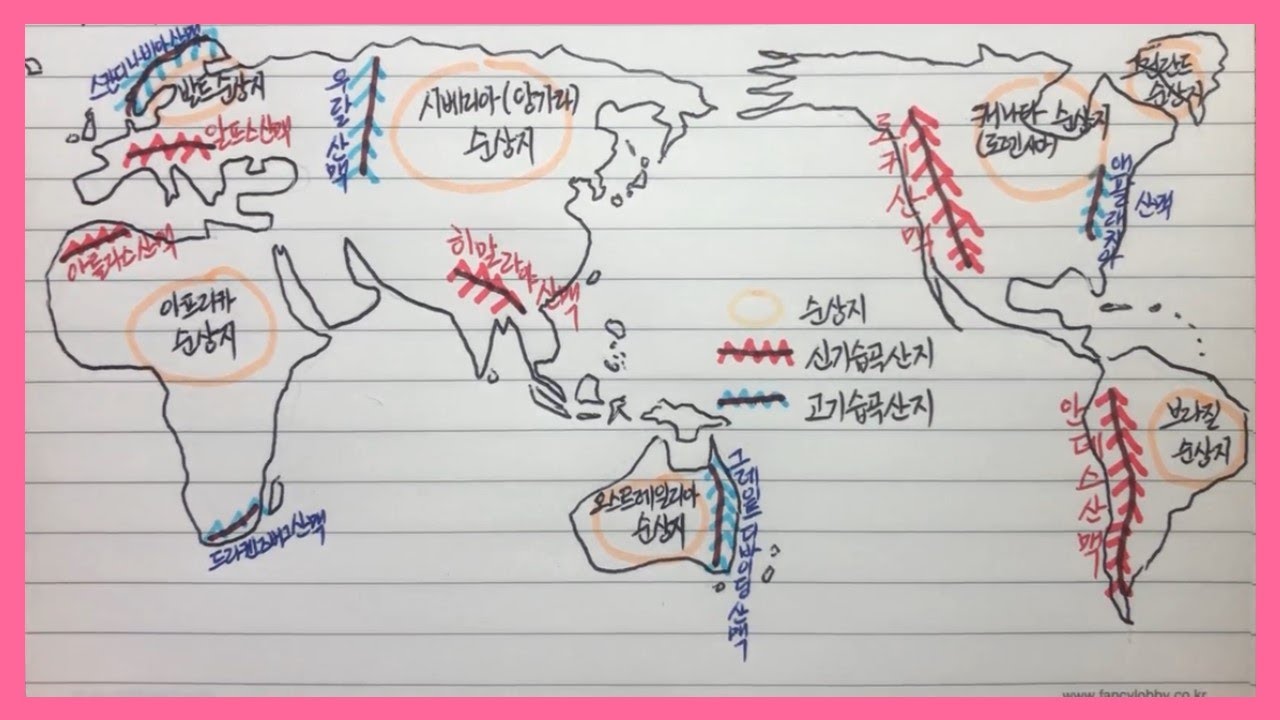 스칸디나비아산맥
발트순상지
알프스산맥
우랄산맥
시베리아(앙가라)
순상지
로키산맥
캐나다 순상지
(로렌시아)
그린란드
순상지
애팔래치아
산맥
아틀라스산맥
아프리카
순상지
히말라야산맥
순상지
신기습곡산지
고기습곡산지
안데스산맥
브라질
순상지
오스트레일리아
순상지
그레이트디바이딩산맥
드라켄즈버그산맥
www.fancylobby.co.kr